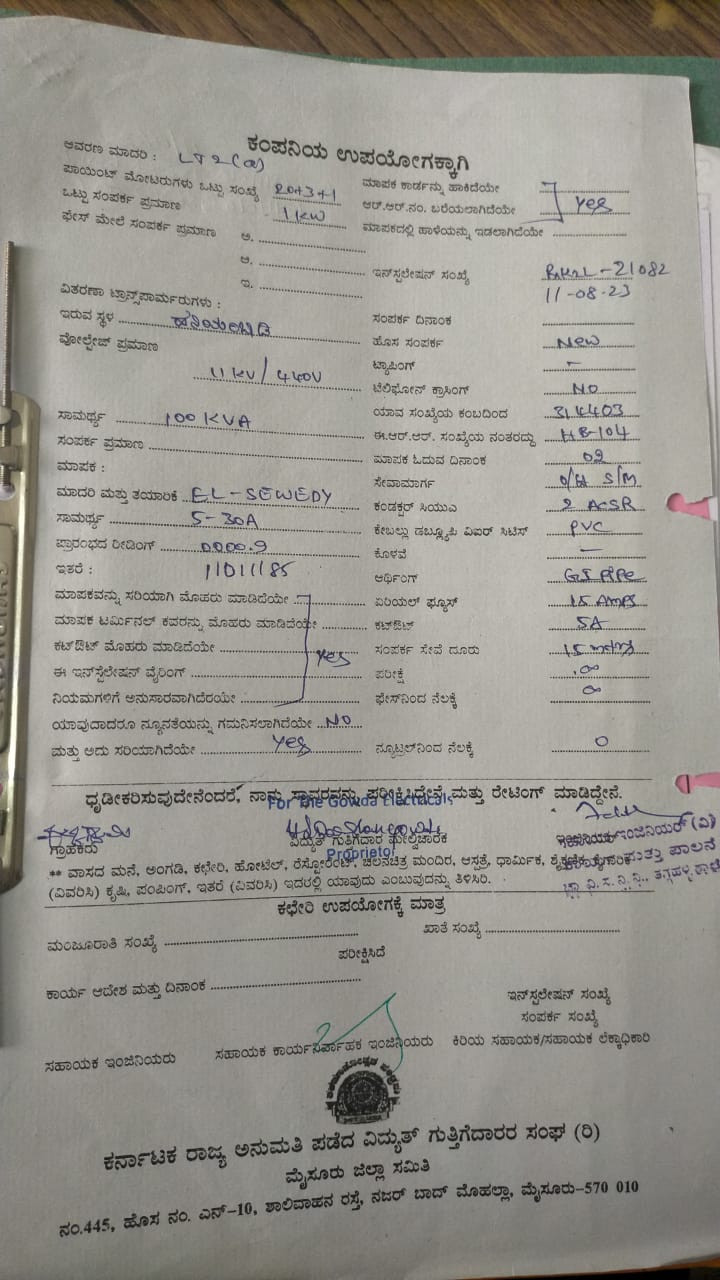 ಕಂಪನಿಯ ಉಪಯೋಗಕ್ಕಾಗಿ
ಆವರಣ ಮಾದರಿ : LT2(a)
ಪಾಯಿಂಟ್ ಮೋಟರುಗಳು ಒಟ್ಟು ಸಂಖ್ಯೆ 20+3+1
ಒಟ್ಟು ಸಂಪರ್ಕ ಪ್ರಮಾಣ 1 KW
ಫೇಸ್ ಮೇಲೆ ಸಂಪರ್ಕ ಪ್ರಮಾಣ ಅ.
ಆ.
ಇ.
ವಿತರಣಾ ಟ್ರಾನ್ಸ್‌ಪಾರ್ಮರುಗಳು :
ಇರುವ ಸ್ಥಳ
ವೋಲ್ಟೇಜ್ ಪ್ರಮಾಣ
11 KV / 440V
ಸಾಮರ್ಥ್ಯ 100 KVA
ಸಂಪರ್ಕ ಪ್ರಮಾಣ
ಮಾಪಕ :
ಮಾದರಿ ಮತ್ತು ತಯಾರಿಕೆ EL-SEWEDY
ಸಾಮರ್ಥ್ಯ 5-30A
ಪ್ರಾರಂಭದ ರೀಡಿಂಗ್ 0000.9
ಇತರೆ : 11011185
ಮಾಪಕವನ್ನು ಸರಿಯಾಗಿ ಮೊಹರು ಮಾಡಿದೆಯೇ
ಮಾಪಕ ಟರ್ಮಿನಲ್ ಕವರನ್ನು ಮೊಹರು ಮಾಡಿದೆಯೇ
ಕಟ್‌ಔಟ್ ಮೊಹರು ಮಾಡಿದೆಯೇ yes
ಈ ಇನ್‌ಸ್ಟೆಲೇಷನ್ ವೈರಿಂಗ್
ನಿಯಮಗಳಿಗೆ ಅನುಸಾರವಾಗಿದೆರಯೇ
ಯಾವುದಾದರೂ ನ್ಯೂನತೆಯನ್ನು ಗಮನಿಸಲಾಗಿದೆಯೇ NO
ಮತ್ತು ಅದು ಸರಿಯಾಗಿದೆಯೇ yes
ಮಾಪಕ ಕಾರ್ಡನ್ನು ಹಾಕಿದೆಯೇ
ಆರ್.ಆರ್.ನಂ. ಬರೆಯಲಾಗಿದೆಯೇ yes
ಮಾಪಕದಲ್ಲಿ ಹಾಳೆಯನ್ನು ಇಡಲಾಗಿದೆಯೇ
ಇನ್‌ಸ್ಟಲೇಷನ್ ಸಂಖ್ಯೆ -21082
11-08-23
ಸಂಪರ್ಕ ದಿನಾಂಕ
ಹೊಸ ಸಂಪರ್ಕ New
ಟ್ಯಾಪಿಂಗ್ -
ಟೆಲಿಫೋನ್ ಕ್ರಾಸಿಂಗ್ NO
ಯಾವ ಸಂಖ್ಯೆಯ ಕಂಬದಿಂದ 314403
ಈ.ಆರ್.ಆರ್. ಸಂಖ್ಯೆಯ ನಂತರದ್ದು HB-104
ಮಾಪಕ ಓದುವ ದಿನಾಂಕ 02
ಸೇವಾಮಾರ್ಗ O/H S/M
ಕಂಡಕ್ಟರ್ ಸಿಯುಎ 2 ACSR
ಕೇಬಲ್ಲು ಡಬ್ಲ್ಯೂಪಿ ವಿಐರ್ ಸಿಟಿಸ್ PVC
ಕೊಳವೆ -
ಆರ್ಥಿಂಗ್ GI PIPe
ಏರಿಯಲ್ ಫ್ಯೂಸ್ 15 Amps
ಕಟ್‌ಔಟ್ 5A
ಸಂಪರ್ಕ ಸೇವೆ ದೂರು 15
ಪರೀಕ್ಷೆ ∞
ಫೇಸ್‌ನಿಂದ ನೆಲಕ್ಕೆ ∞
ನ್ಯೂಟ್ರಲ್‌ನಿಂದ ನೆಲಕ್ಕೆ 0
ಧೃಡೀಕರಿಸುವುದೇನೆಂದರೆ, ನಾನು ಸ್ಥಾವರವನ್ನು ಪರೀಕ್ಷಿಸಿದ್ದೇನೆ ಮತ್ತು ರೇಟಿಂಗ್ ಮಾಡಿದ್ದೇನೆ.
For The Gowda Electricals
ಗ್ರಾಹಕರು ವಿದ್ಯುತ್ ಗುತಿಗೆದಾರ ಮೇಲ್ವಿಚಾರಕ
Proprietor
** ವಾಸದ ಮನೆ, ಅಂಗಡಿ, ಕಛೇರಿ, ಹೋಟೆಲ್, ರೆಸ್ಟೋರೆಂಟ್, ಚಲನಚಿತ್ರ ಮಂದಿರ, ಆಸ್ಪತ್ರೆ, ಧಾರ್ಮಿಕ, ಶೈಕ್ಷಣಿಕ,
(ವಿವರಿಸಿ) ಕೃಷಿ, ಪಂಪಿಂಗ್, ಇತರೆ (ವಿವರಿಸಿ) ಇದರಲ್ಲಿ ಯಾವುದು ಎಂಬುವುದನ್ನು ತಿಳಿಸಿರಿ.
ಕಛೇರಿ ಉಪಯೋಗಕ್ಕೆ ಮಾತ್ರ
ಮಂಜೂರಾತಿ ಸಂಖ್ಯೆ ಖಾತೆ ಸಂಖ್ಯೆ
ಪರೀಕ್ಷಿಸಿದೆ
ಕಾರ್ಯ ಆದೇಶ ಮತ್ತು ದಿನಾಂಕ
ಇನ್‌ಸ್ಟಲೇಷನ್ ಸಂಖ್ಯೆ
ಸಂಪರ್ಕ ಸಂಖ್ಯೆ
ಸಹಾಯಕ ಇಂಜಿನಿಯರು ಸಹಾಯಕ ಕಾರ್ಯನಿರ್ವಾಹಕ ಇಂಜಿನಿಯರು ಕಿರಿಯ ಸಹಾಯಕ/ಸಹಾಯಕ ಲೆಕ್ಕಾಧಿಕಾರಿ
ಕರ್ನಾಟಕ ರಾಜ್ಯ ಅನುಮತಿ ಪಡೆದ ವಿದ್ಯುತ್ ಗುತ್ತಿಗೆದಾರರ ಸಂಘ (ರಿ)
ಮೈಸೂರು ಜಿಲ್ಲಾ ಸಮಿತಿ
ನಂ.445, ಹೊಸ ನಂ. ಎನ್-10, ಶಾಲಿವಾಹನ ರಸ್ತೆ, ನಜರ್ ಬಾದ್ ಮೊಹಲ್ಲಾ, ಮೈಸೂರು-570 010